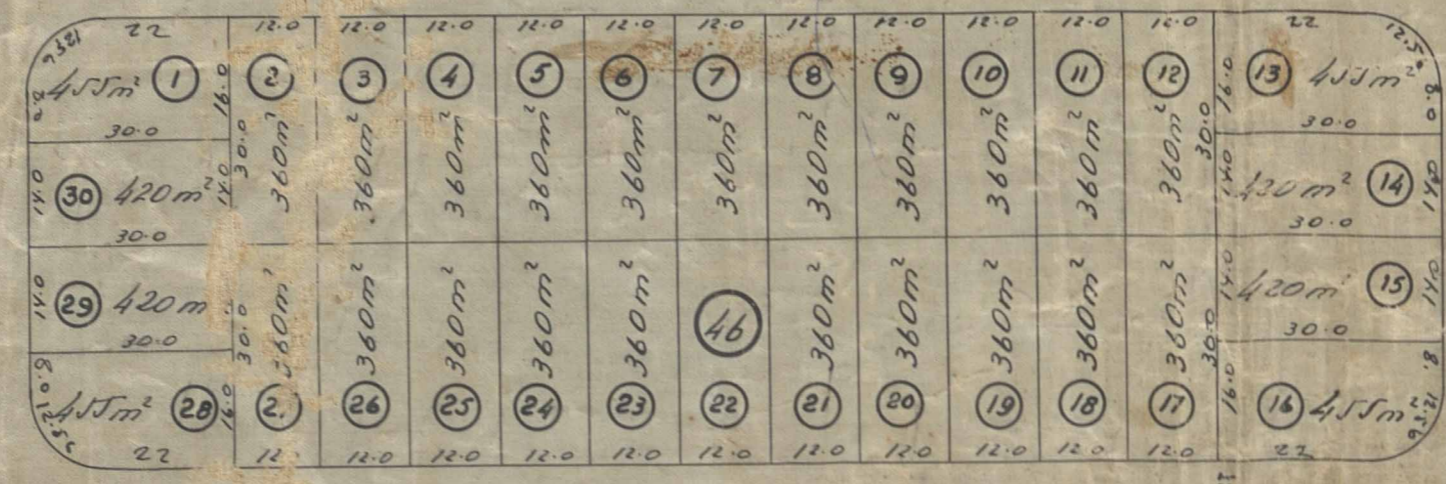 22 12.0 12.0 12.0 12.0 12.0 12.0 12.0 12.0 12.0 12.0 12.0 22
12.56 12.56
1 2 3 4 5 6 7 8 9 10 11 12 13
455m² 16.0 16.0 455m²
8.0 8.0
30.0 30.0 30.0 30.0
360m² 360m² 360m² 360m² 360m² 360m² 360m² 360m² 360m² 360m² 360m²
14.0 30 420m² 14.0 14.0 420m² 14 14.0
30.0 30.0
14.0 29 420m 14.0 420m² 15 14.0
360m² 360m² 360m² 360m² 360m² 46 360m² 360m² 360m² 360m² 360m²
30.0 30.0 30.0 30.0
8.0 8.
455m² 28 16.0 2 26 25 24 23 22 21 20 19 18 17 16.0 16 455m²
12.56 12.56
22 12. 12.0 12.0 12.0 12.0 12.0 12.0 12.0 12.0 12.0 12.0 22